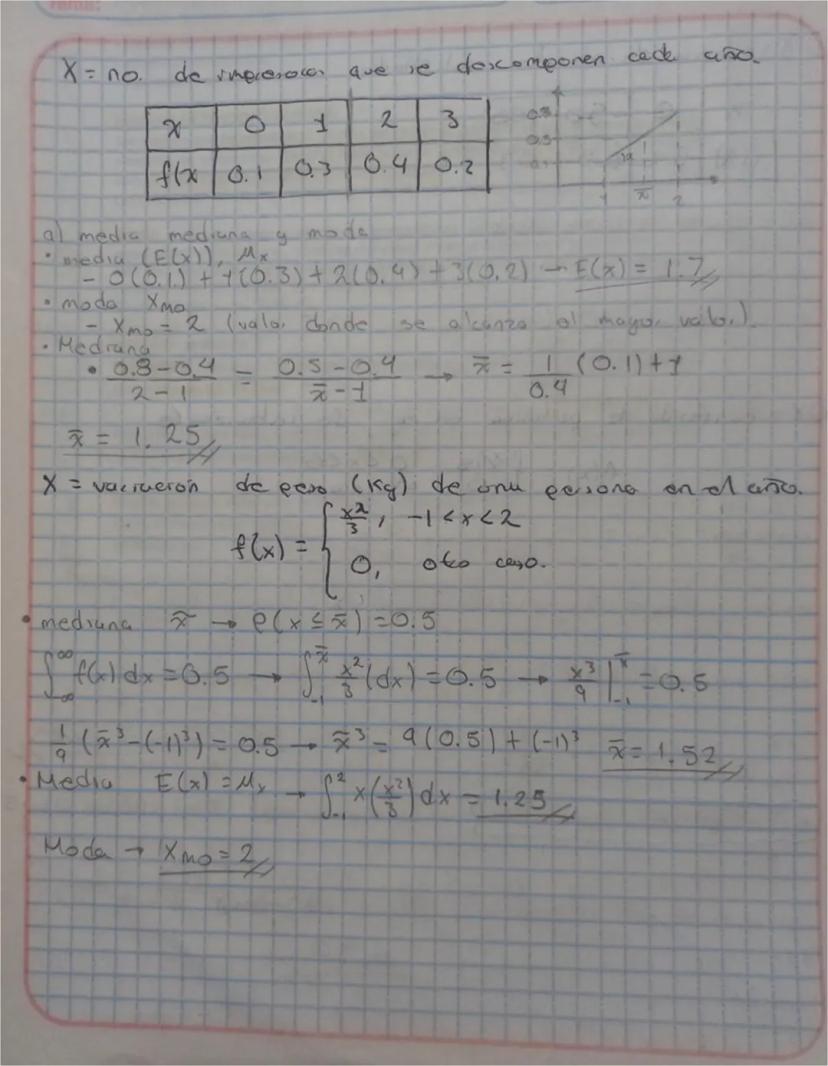 Tema:
X = no. de impresoras que se descomponen cada año.
x 0 1 2 3
f(x 0.1 0.3 0.4 0.2
0.8
0.5
1 x̄ 2
a) media mediana y moda
• media (E(x)), Mx
- 0(0.1) + 1(0.3) + 2(0.4) + 3(0.2) → E(x) = 1.7
• moda Xmo
- Xmo = 2 (valor donde se alcanza el mayor valor).
• Mediana
• (0.8-0.4)/(2-1) = (0.5-0.4)/(x̄-1) → x̄ = 1/0.4 (0.1)+1
x̄ = 1.25
X = variación de peso (Kg) de una persona en el año.
f(x) = { x²/3, -1<x<2
0, otro caso.
• mediana x̃ → P(x ≤ x̄) = 0.5
∫_-∞^∞ f(x) dx = 0.5 → ∫_-1^x̄ x²/3 (dx) = 0.5 → x³/9 |_-1^x̄ = 0.5
1/9 (x̄³-(-1)³) = 0.5 → x̄³ = 9(0.5)+(-1)³ x̄ = 1.52
• Media E(x) = Mx → ∫_-1^2 x(x²/3) dx = 1.25
Moda → Xmo = 2